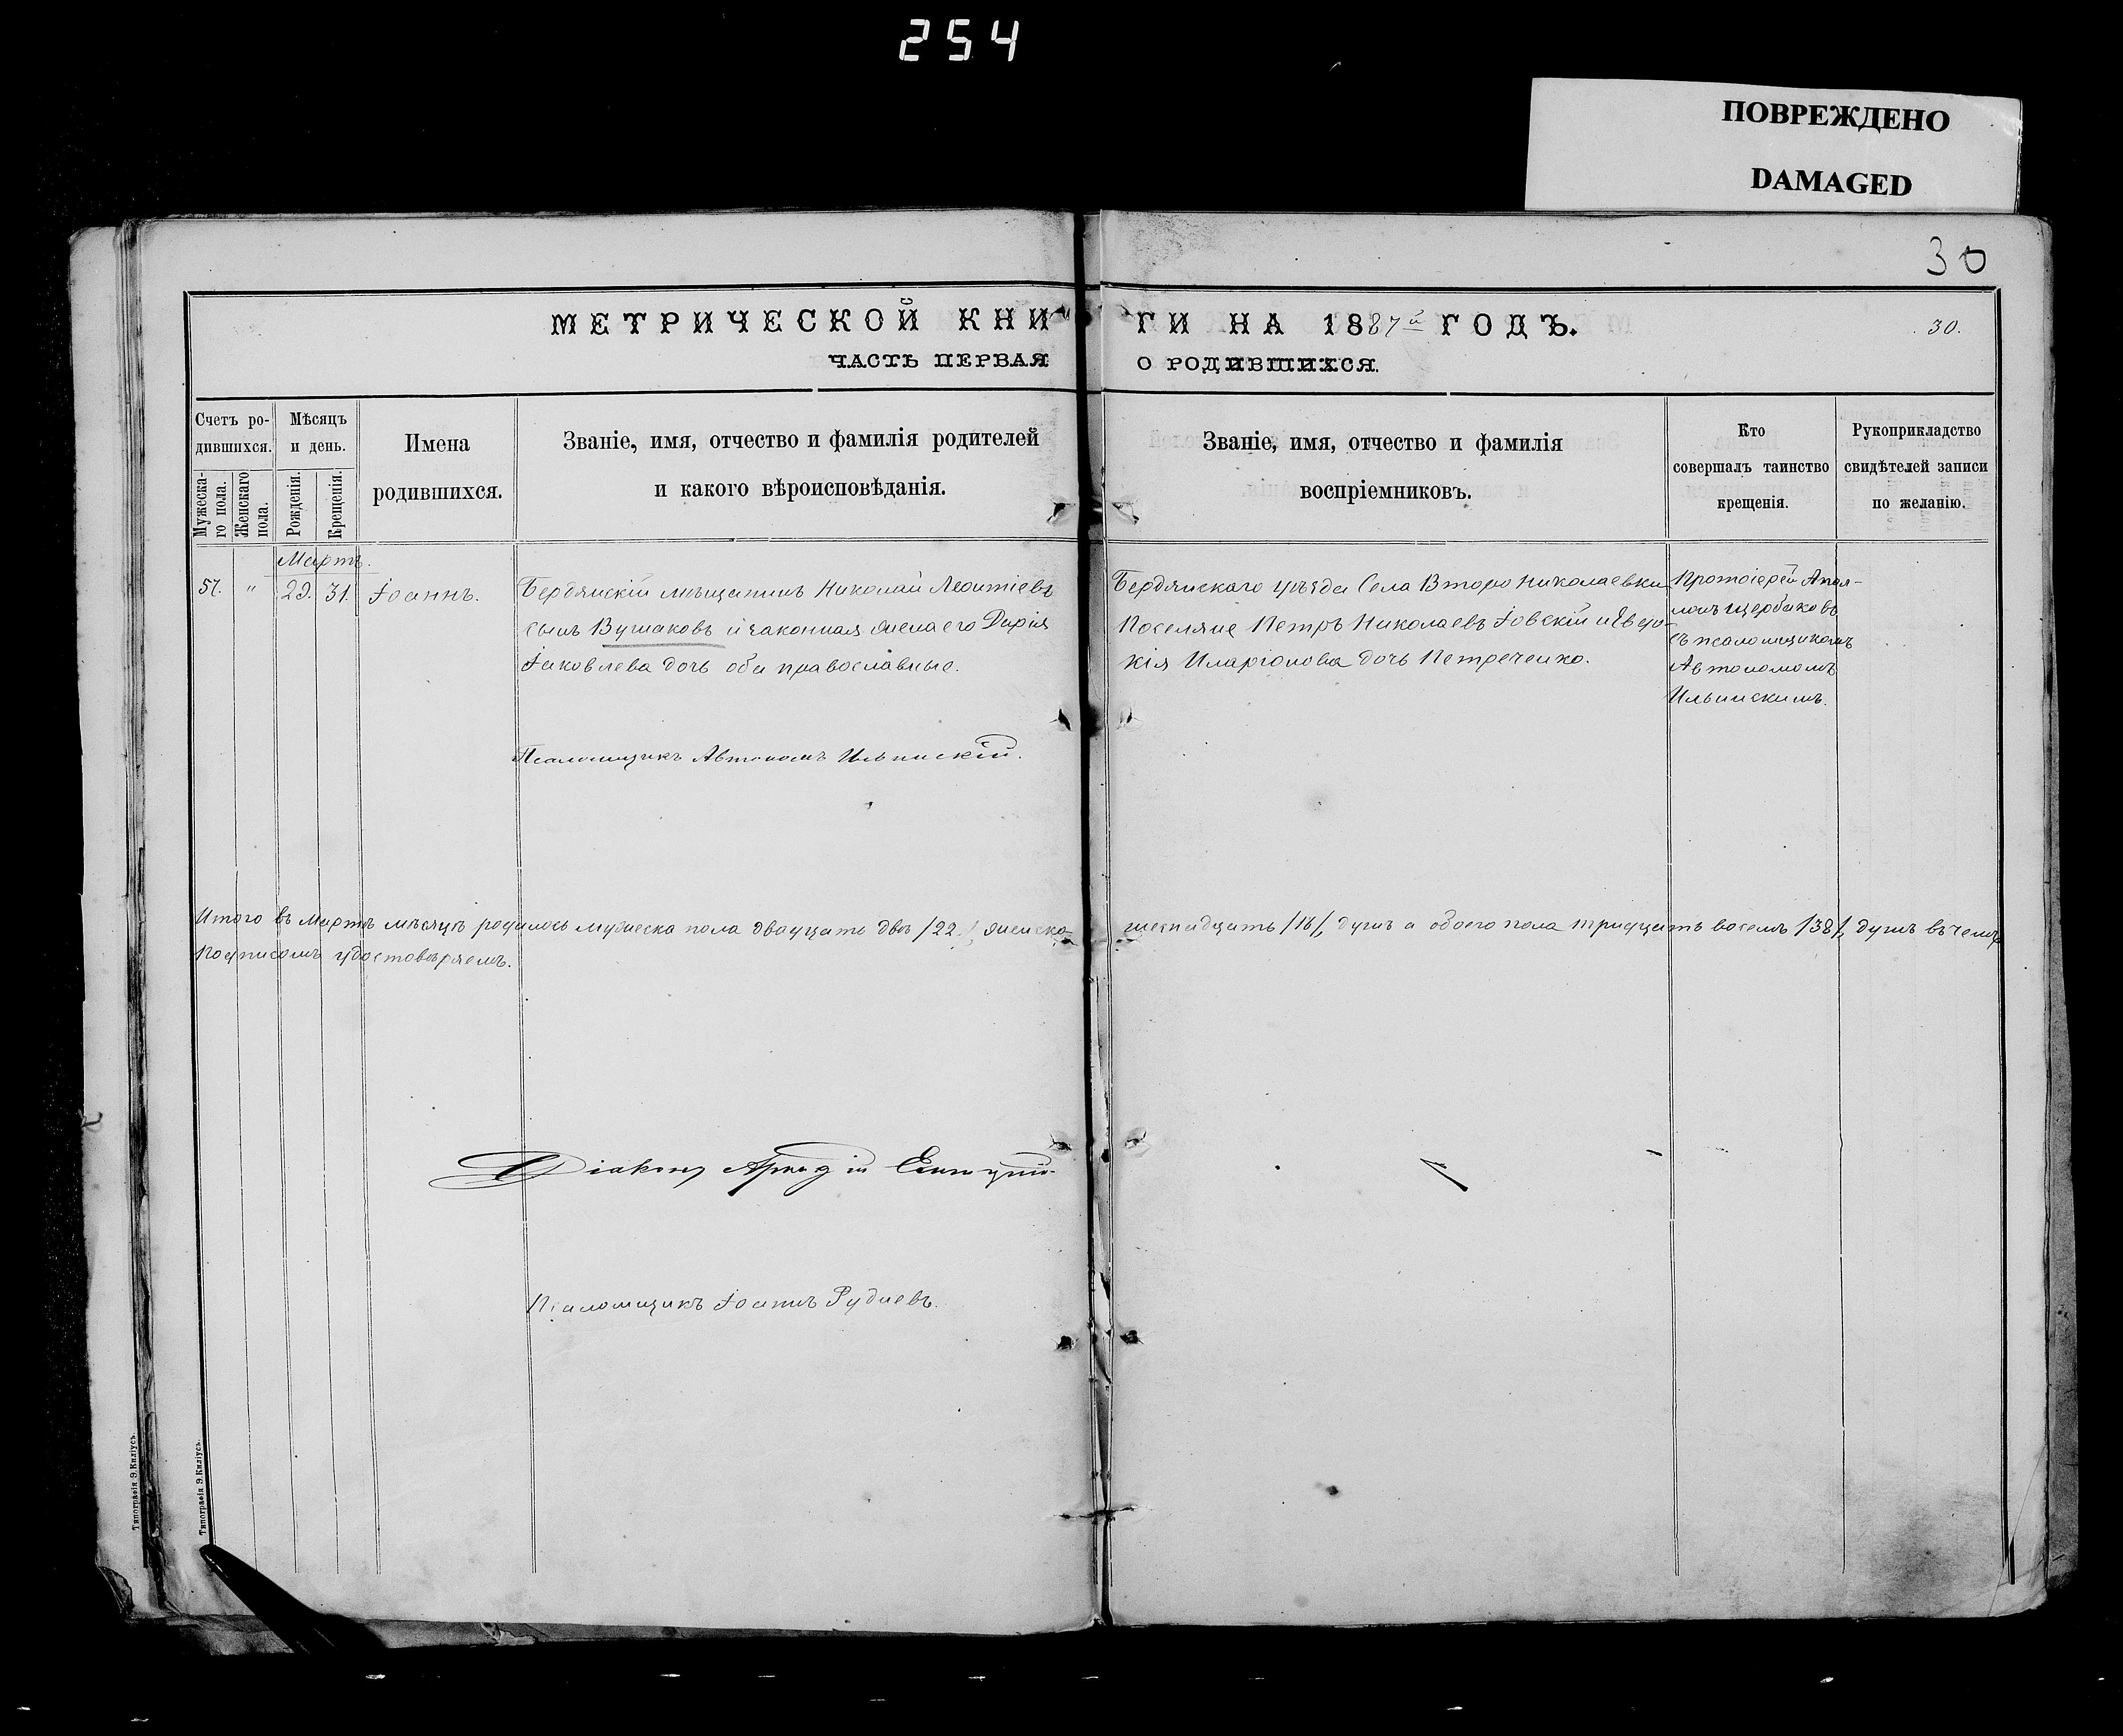 254
ПОВРЕЖДЕНО
DAMAGED
30
МЕТРИЧЕСКОЙ КНИГИ НА 1887й ГОДЪ.
30.
ЧАСТЬ ПЕРВАЯ О РОДИВШИХСЯ.
Счетъ ро-
дившихся.
Мужеска-
го пола.
Женскаго
пола.
Мѣсяцъ
и день.
Рожденія.
Крещенія.
Имена
родившихся.
Званіе, имя, отчество и фамилія родителей
и какого вѣроисповѣданія.
Званіе, имя, отчество и фамилія
воспріемниковъ.
Кто
совершалъ таинство
крещенія.
Рукоприкладство
свидѣтелей записи
по желанію.
Мартъ.
57. " 29. 31. Іоаннъ.
Бердянскій мѣщанинъ Николай Леонтіевъ
сынъ Бушаковъ и законная жена его Дарія
Іаковлева дочь оба православные.
Бердянскаго уѣзда Села Второ Николаевки
Поселяне Петръ Николаевъ Іовскій и Евдо-
кія Иларіонова дочь Петреченко.
Протоіерей
Щербаковъ
съ псаломщикомъ
Автономомъ
Ильинскимъ.
Псаломщикъ Автономъ Ильинскій.
Итого въ Мартѣ мѣсяцѣ родилось мужеска пола двадцать два /22/, женска шестнадцать /16/, душъ а обоего пола тридцать восемь /38/, душъ въ чемъ
подписомъ удостовѣряемъ.
Діаконъ Аркадій
Псаломщикъ Іоаннъ Рудневъ.
Типографія Э. Киліусъ.
Типографія Э. Киліусъ.